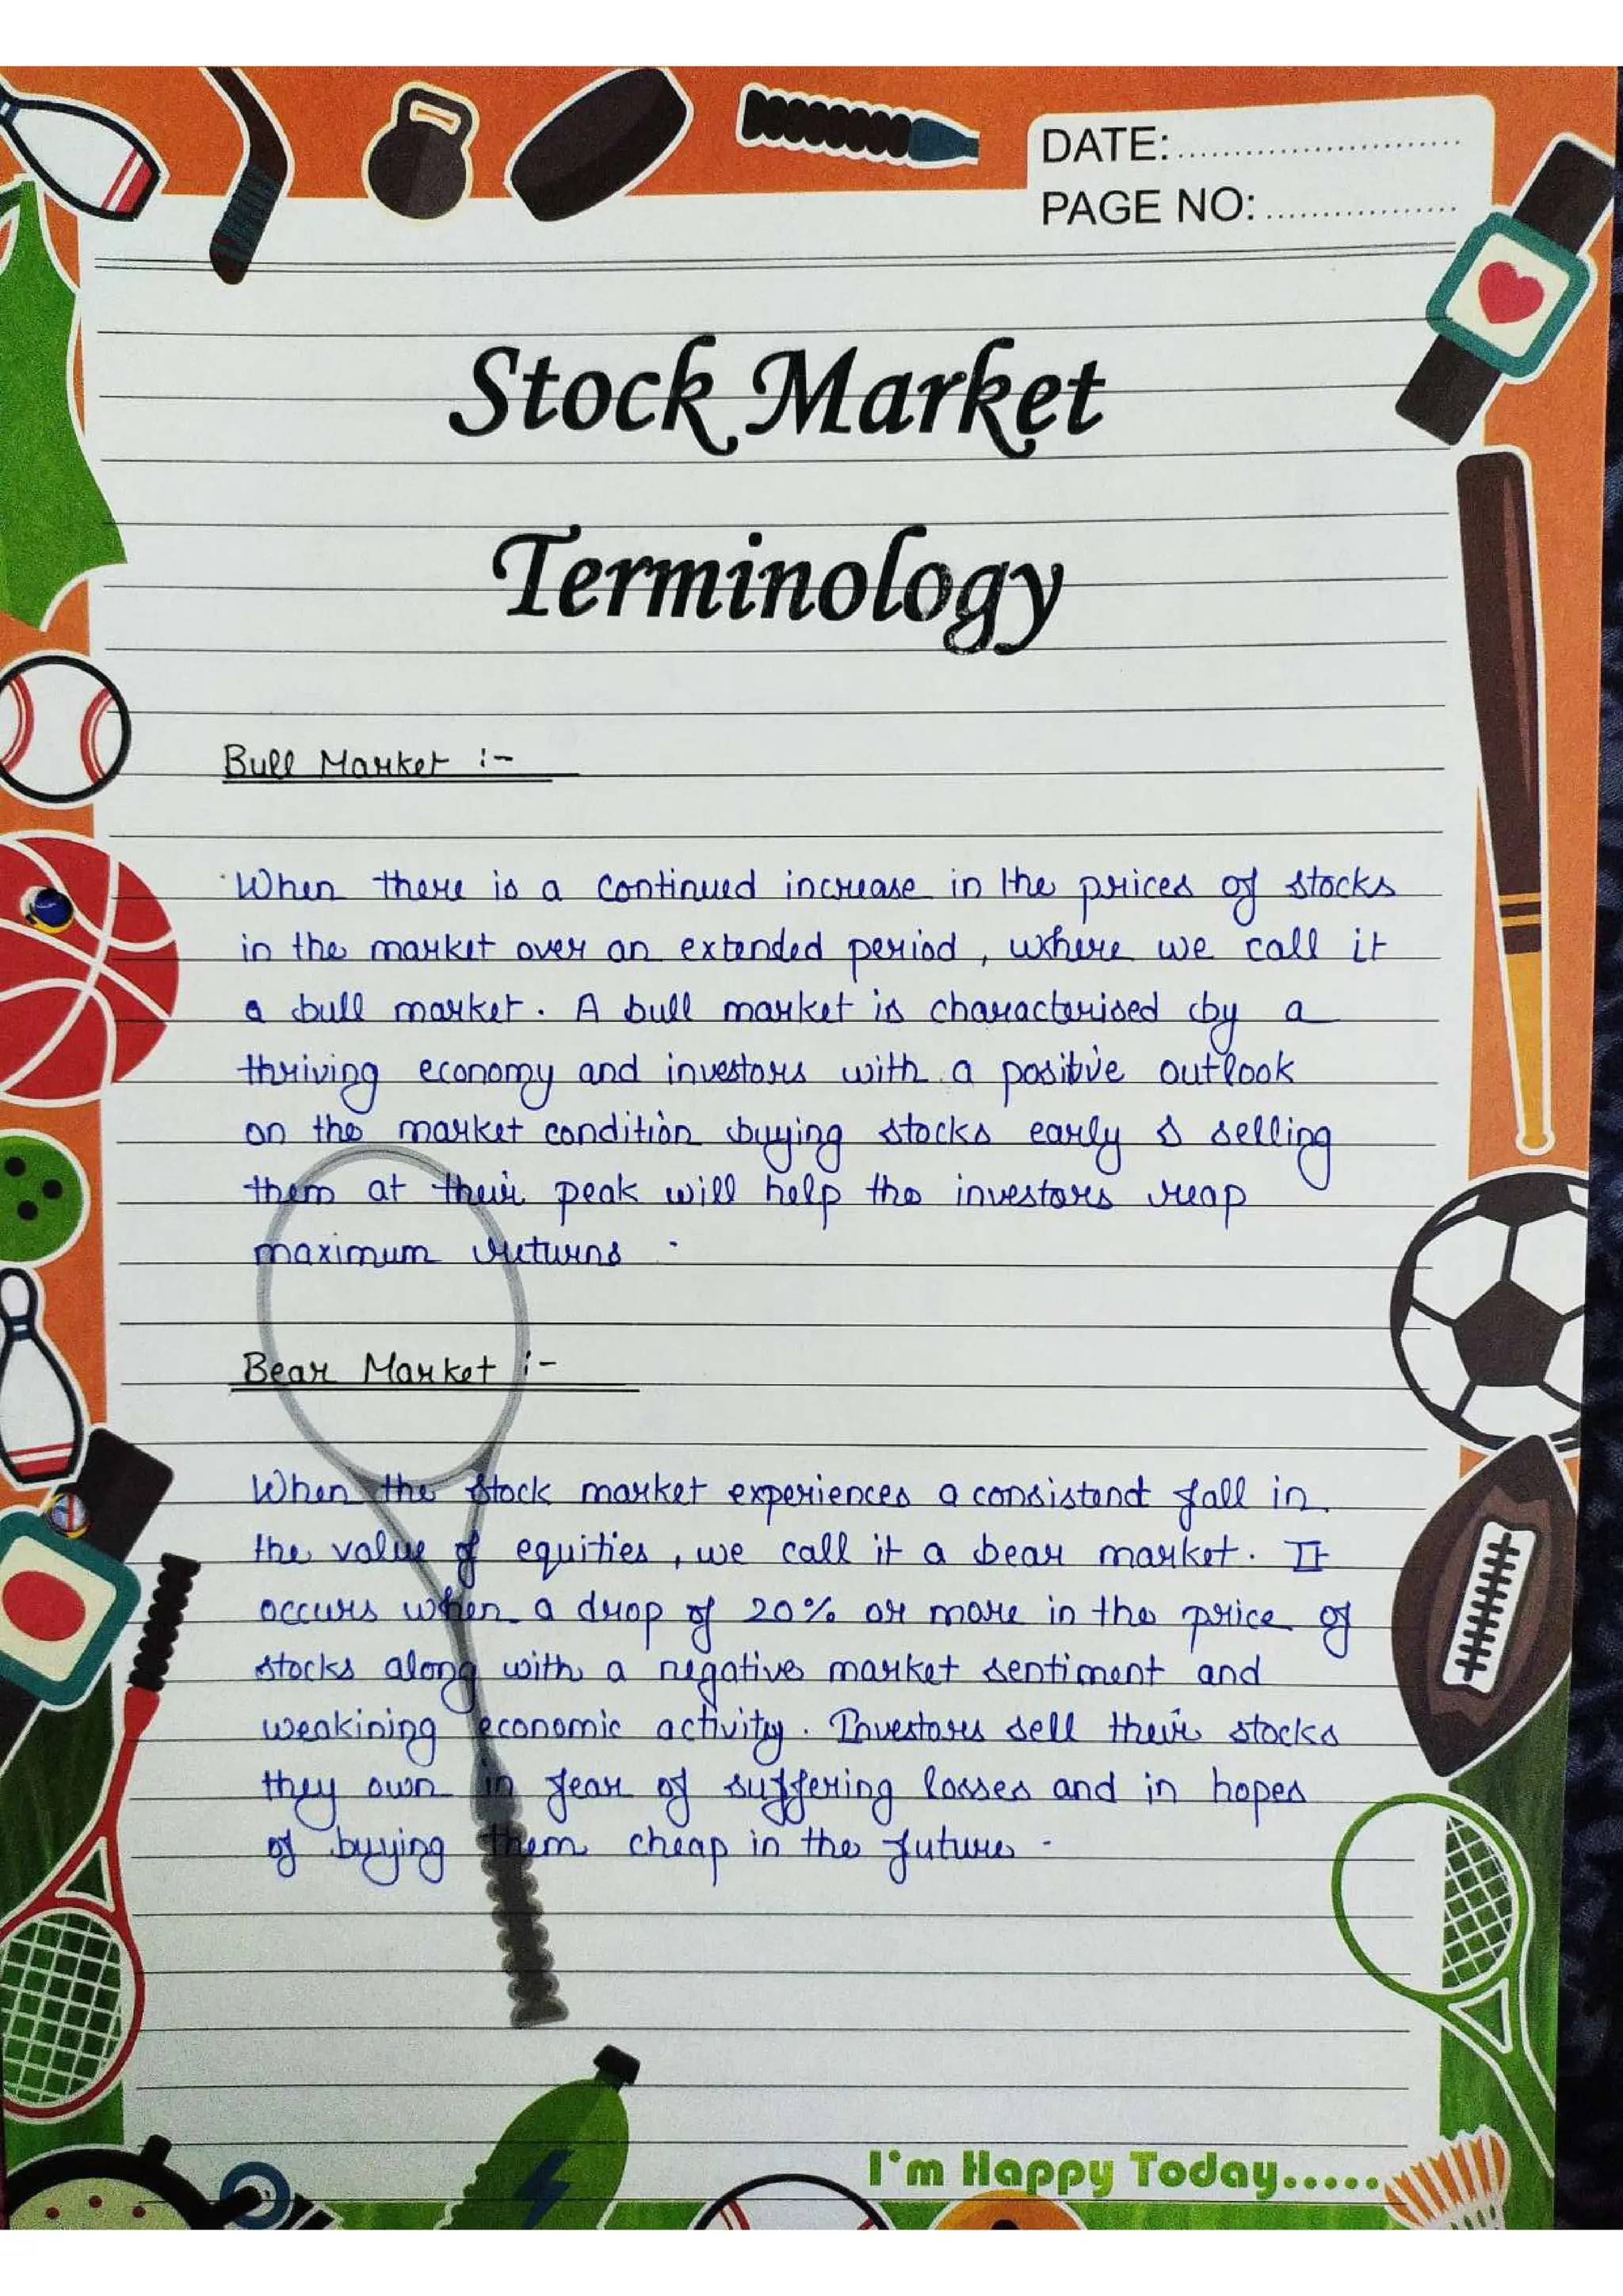 DATE:..........................
PAGE NO:..................
Stock Market
Terminology
Bull Market :-
When there is a continued increase in the prices of stocks
in the market over an extended period, where we call it
a bull market. A bull market is characterised by a
thriving economy and investors with a positive outlook
on the market condition buying stocks early & selling
them at their peak will help the investors reap
maximum returns.
Bear Market :-
When the stock market experiences a consistend fall in
the value of equities, we call it a bear market. It
occurs when a drop of 20% or more in the price of
stocks along with a negative market sentiment and
weakining economic activity. Investors sell their stocks
they own in fear of suffering losses and in hopes
of buying them cheap in the future.
I'm Happy Today.....